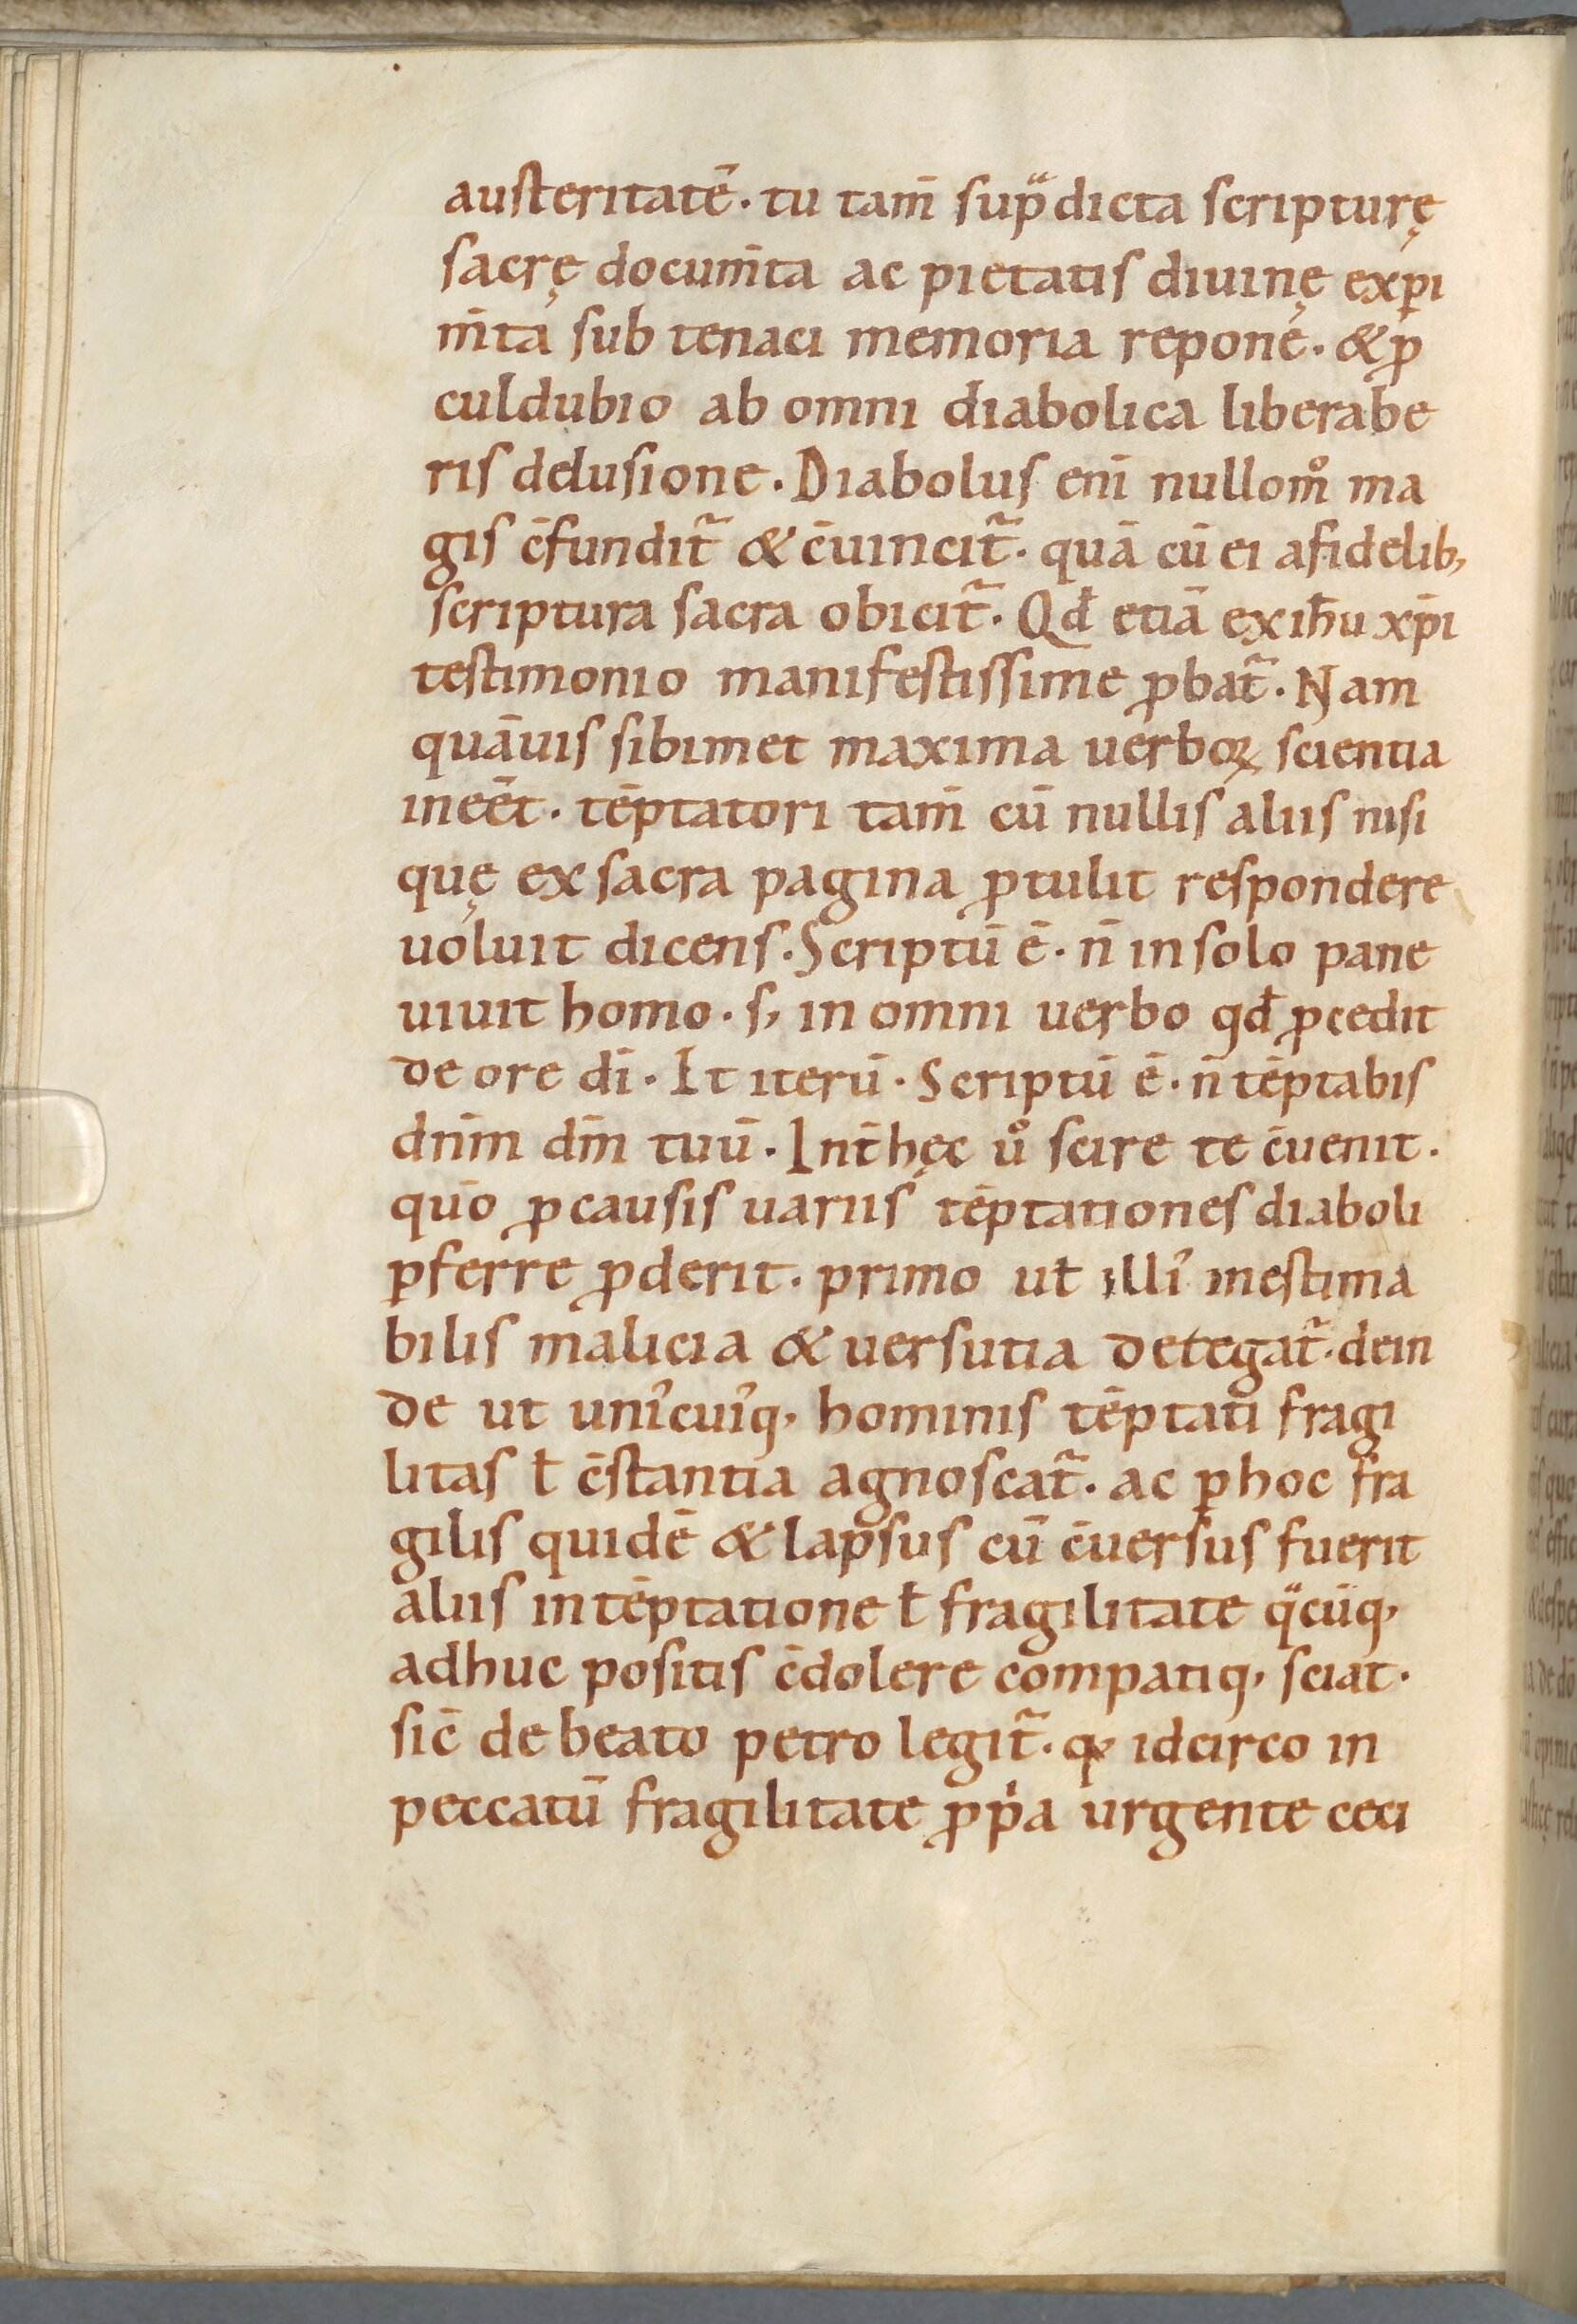 austeritatē. tu tam̄ sup̄ͣdicta scripturę
sacrę docum̄ta ac pietatis diuinę exꝑi
m̄ta sub tenaci memoria repone. & ꝓ
culdubio ab omni diabolica liberabe
ris delusione. Diabolus eni̅ nullomͦ ma
gis c̄fundit᷑ & c̄uincit᷑. quā cū ei afidelib;
scriptura sacra obicit᷑. Qđ etiā ex ih̄u xp̄i
testimonio manifestissime ꝓbat᷑. Nam
quāuis sibimet maxima uerboꝝ scientia
ineēt. tēptatori tam̄ cū nullis aliis nisi
quę ex sacra pagina ꝓtulit respondere
uoluit dicens. Scriptū ē. n̄ in solo pane
uiuit homo. s; in omni uerbo qđ ꝓcedit
de ore dī. It iterū. Scriptū ē. n̄ tēptabis
dn̄m dm̄ tuū. Int̄ hęc uͦ scire te c̄uenit.
quo ꝓ causis uariis tēptationes diaboli
ꝑferre ꝓderit. primo ut illiꝰ inestima
bilis malicia & uersutia detegat᷑. dein
de ut uniꝰcuiꝰq; hominis tēptati fragi
litas ł c̄stantia agnoscat᷑. ac ꝑ hoc fra
gilis quidē & lapsus cū c̄uersus fuerit
aliis in tēptatione ł fragilitate qͣcūq;
adhuc positis c̄dolere compatiq; sciat.
sic̄ de beato petro legit᷑. qꝫ idcirco in
peccatū fragilitate ꝓpͥa urgente ceci